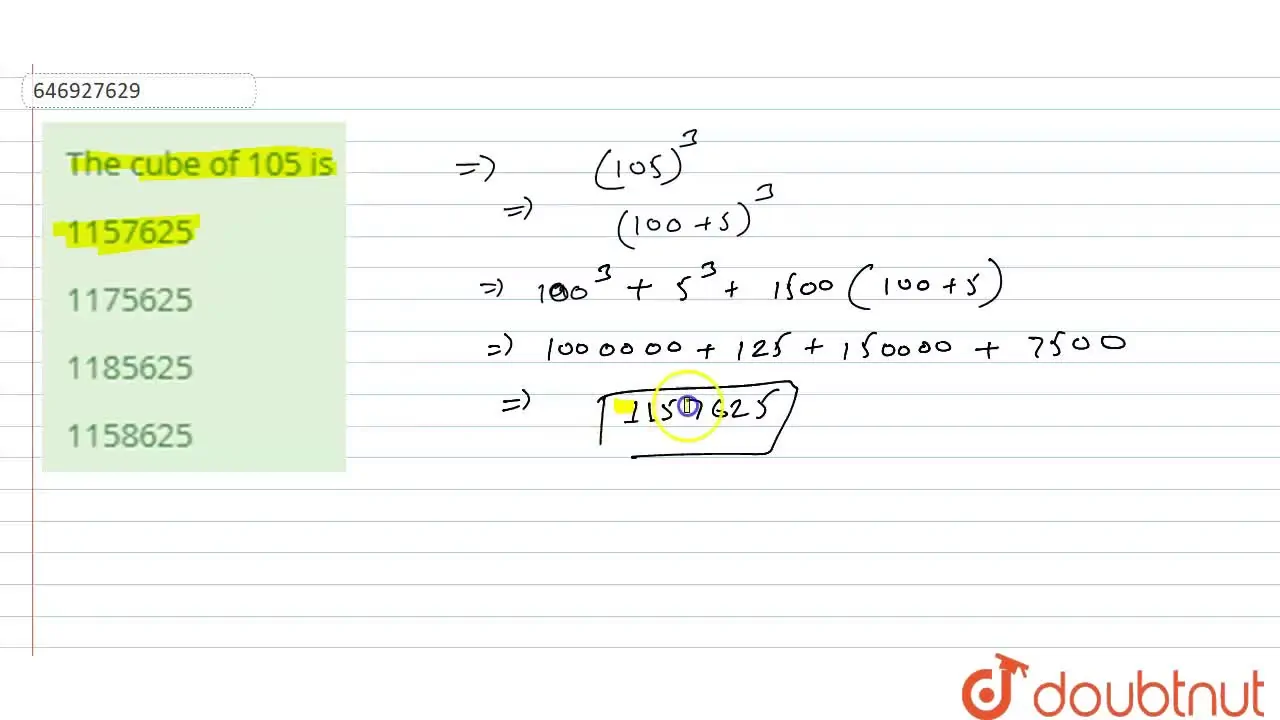 646927629
The cube of 105 is
1157625
1175625
1185625
1158625
=> (105)^3
=> (100+5)^3
=> 100^3 + 5^3 + 1500 (100+5)
=> 1000000 + 125 + 150000 + 7500
=> 1157625
doubtnut